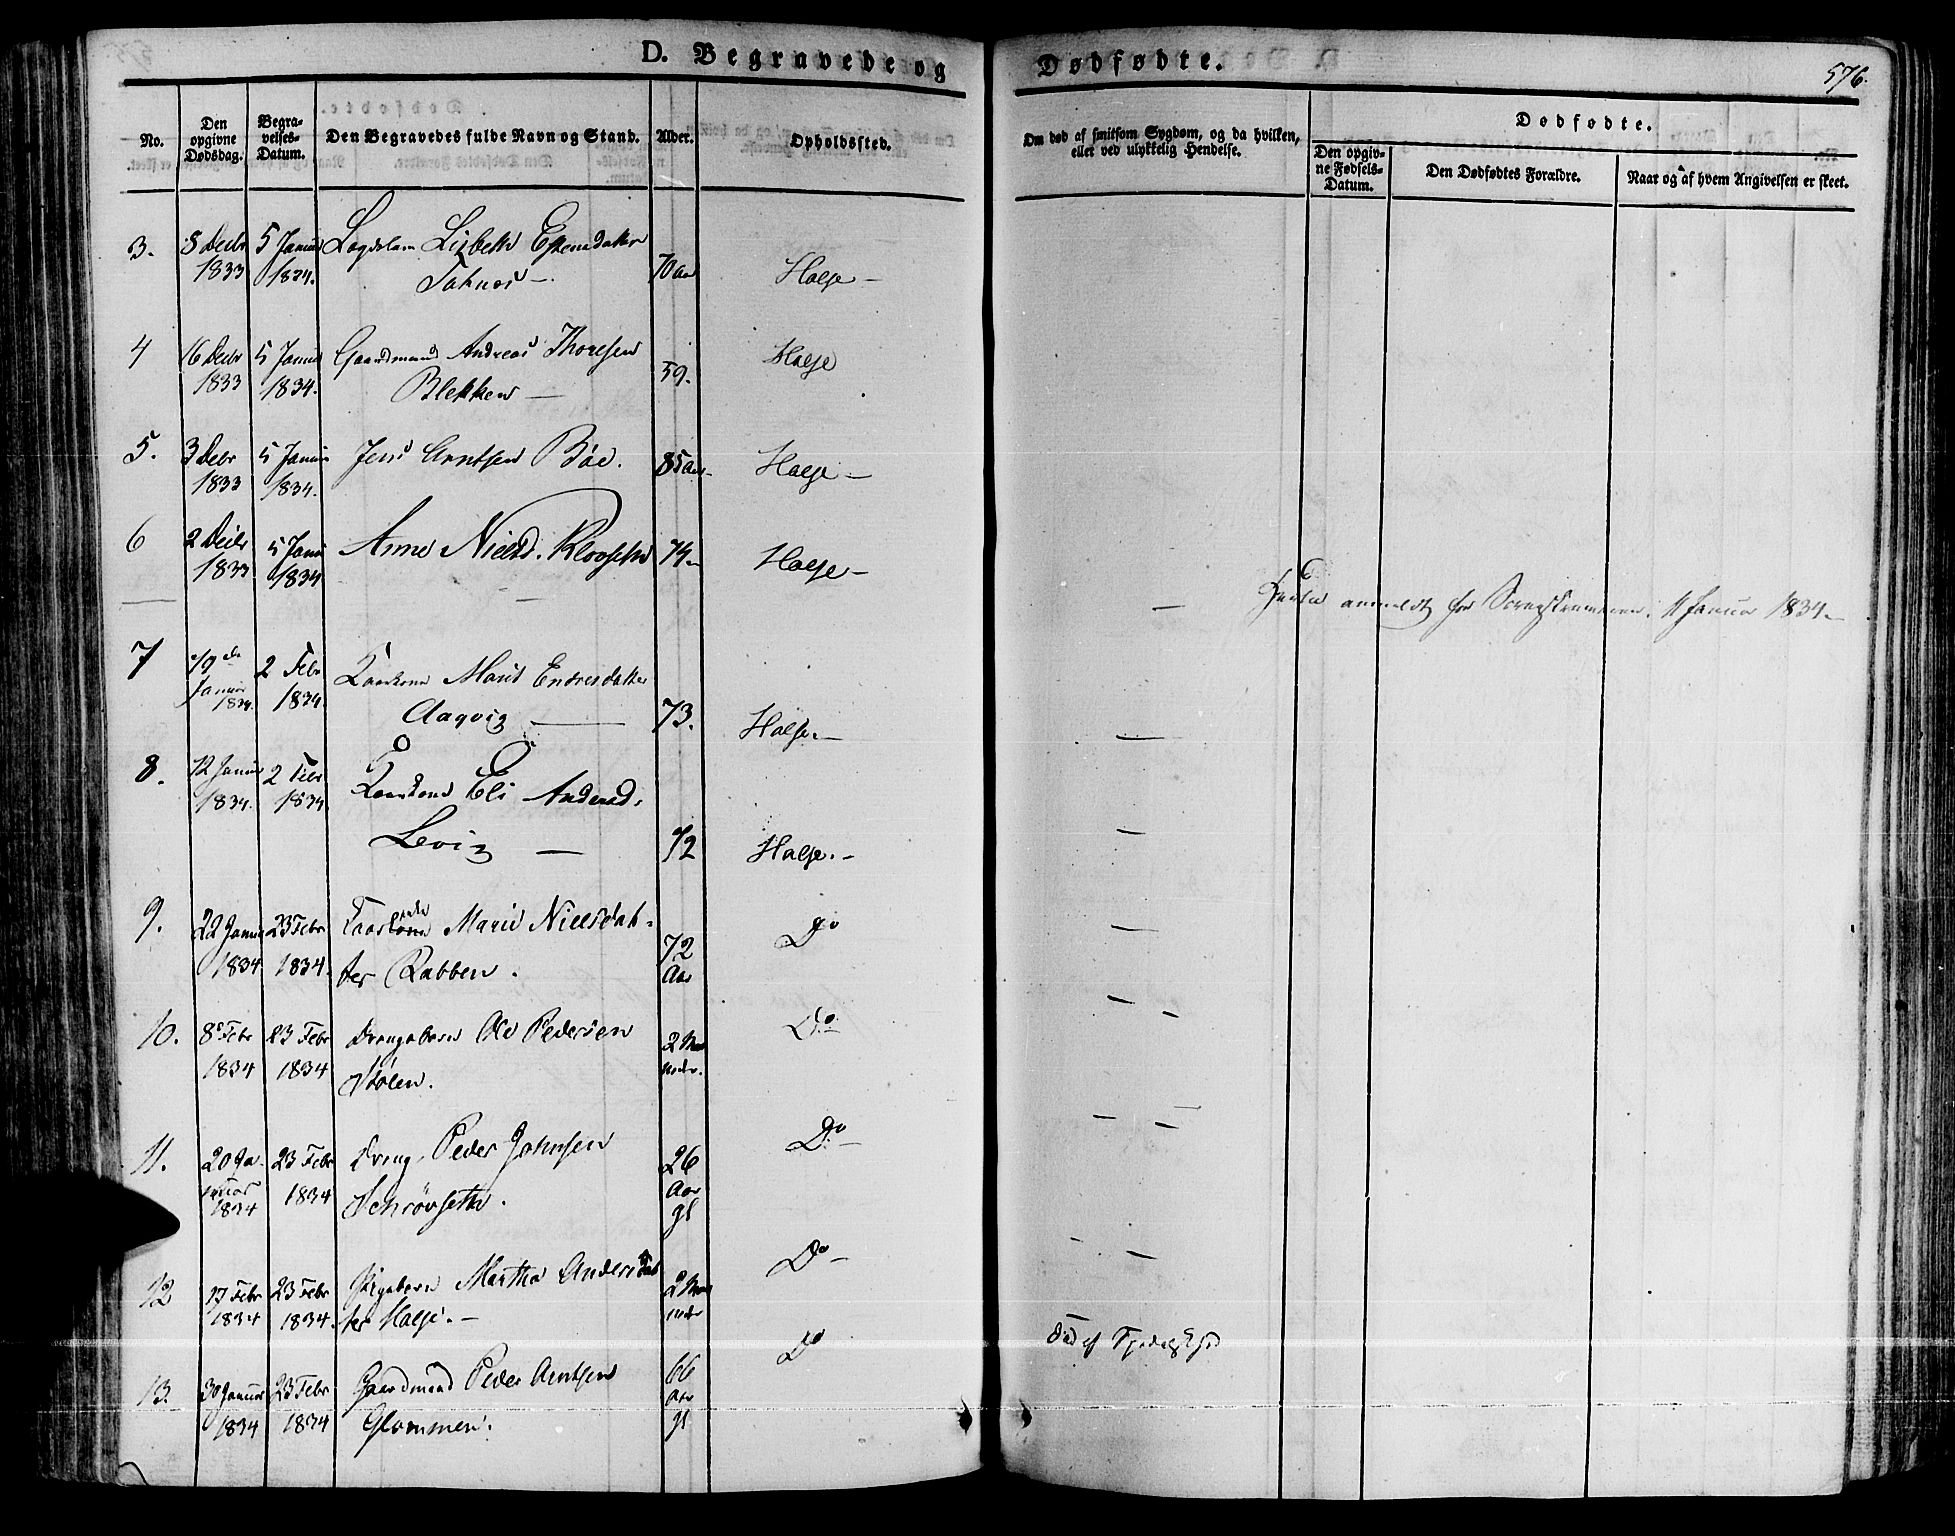 D. Begravede og Dødfødte.
576.
No.
Den opgivne Dødsdag.
Begravelses-Datum.
Den Begravedes fulde Navn og Stand.
Alder.
Opholdssted.
Om død af smitsom Sygdom, og da hvilken, eller ved ulykkelig Hendelse.
Dødfødte.
Den opgivne Fødsels-Datum.
Den Dødfødtes Forældre.
Naar og af hvem Angivelsen er skeet.
3. 8 Decbr 5 Januar Lisbeth Espensdatter
1833 1834. 70 Aar Halse –
4 16 Decbr 5 Januar Gaardmand Andreas Thoresen Halse
1833 1834. Blekken — 59.
5. 3 Decbr 5 Januar Jens Arntsen Böe. 85 Aar Halse –
1833 1834.
6 2 Decbr 5 Januar Anne Nielsd. 74 – Halse –
1833 1834
anmeldt for 11 Januar 1834 –
7 19de 2 Febr Kaarkone Marit Endresdatter
Januar 1834. 1834. Aagvig — 73. Halse. –
8. 12 Januar 2 Febr Kaarkone Eli Andersd.
1834. 1834 Levig — 72 Halse. –
9. 22 Januar 23 Febr Marit Nielsdat- 72 Do
1834 1834. ter Rabben. Aar
10. 8de Febr 23 Febr Drengebarn Ole Pedersen 2 Maa- Do –
1834 1834 Stölen. neder.
11. 20 Ja- 23 Febr Dreng. Peder Johnsen 26 Do –
nuar 1834 1834 Schrövseth. Aar gl
12 17 Febr 23 Febr Pigebarn Martha Andersdat 2 Maa Do –
1834 1834. ter Halse. – neder
13. 30 Januar 23 Febr Gaardmand Peder Arntsen 66 Do
1834 1834 Glommen. Aar gl
Död af